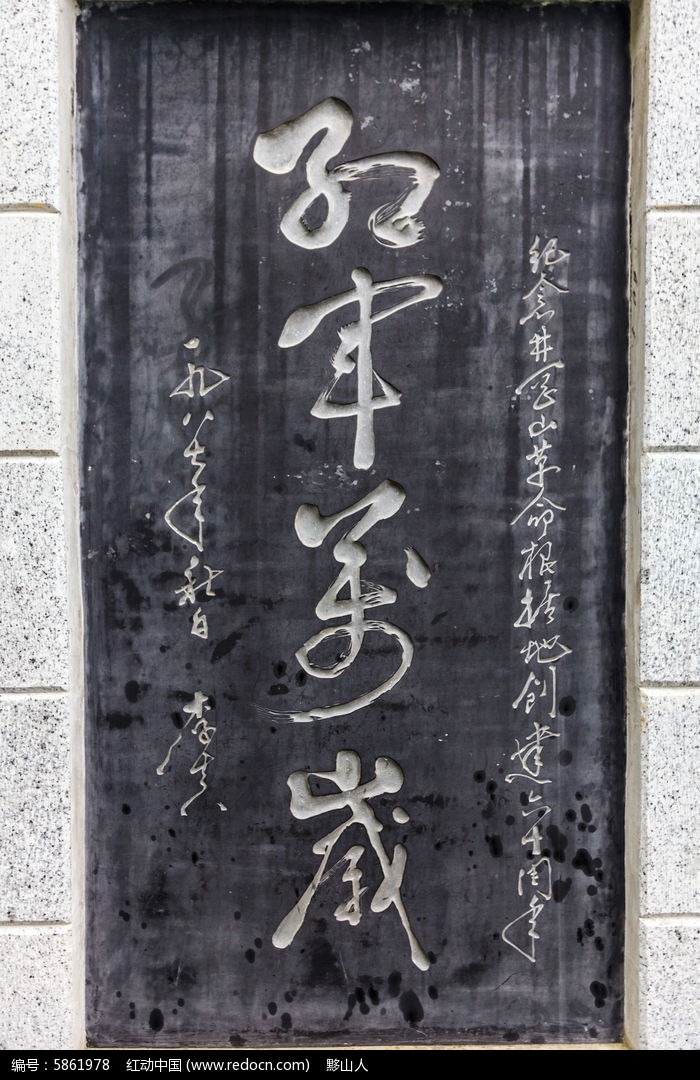 纪念井冈山革命根据地创建六十周年
红军萬歲
一九八七年秋日
编号：5861978 红动中国 (www.redocn.com) 黟山人